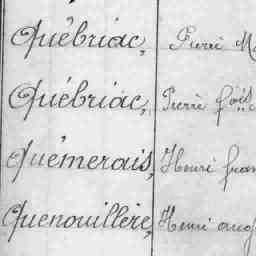 Québriac, Pierre M
Québriac, Pierre fois
Quémerais, Henri fran
Quenouillère, Henri aug